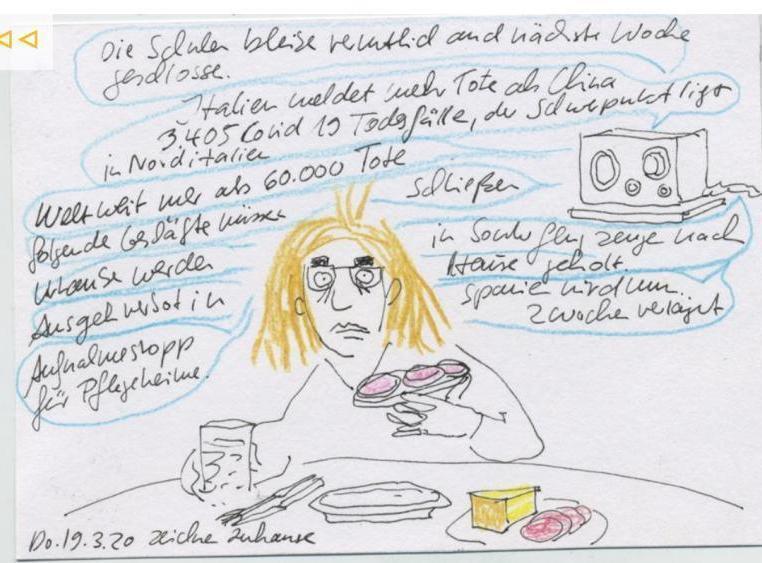 Die Schulen bleibe vermutlich auch nächste Woche
geschlosse.
Italien meldet mehr Tote als China
3.405 Covid 19 Todesfälle, der Schwerpunkt ligt
in Norditalien
Weltweit mer als 60.000 Tote
schließen
folgende Geschäfte müsse
Urlauber werden
in Sonderflugzeuge nach
Hause geholt.
Ausgehverbot in
Spanien wird um
2 wochen verlängert
Aufnahmestopp
für Pflegeheime.
Do.19.3.20 zeichne zuhause